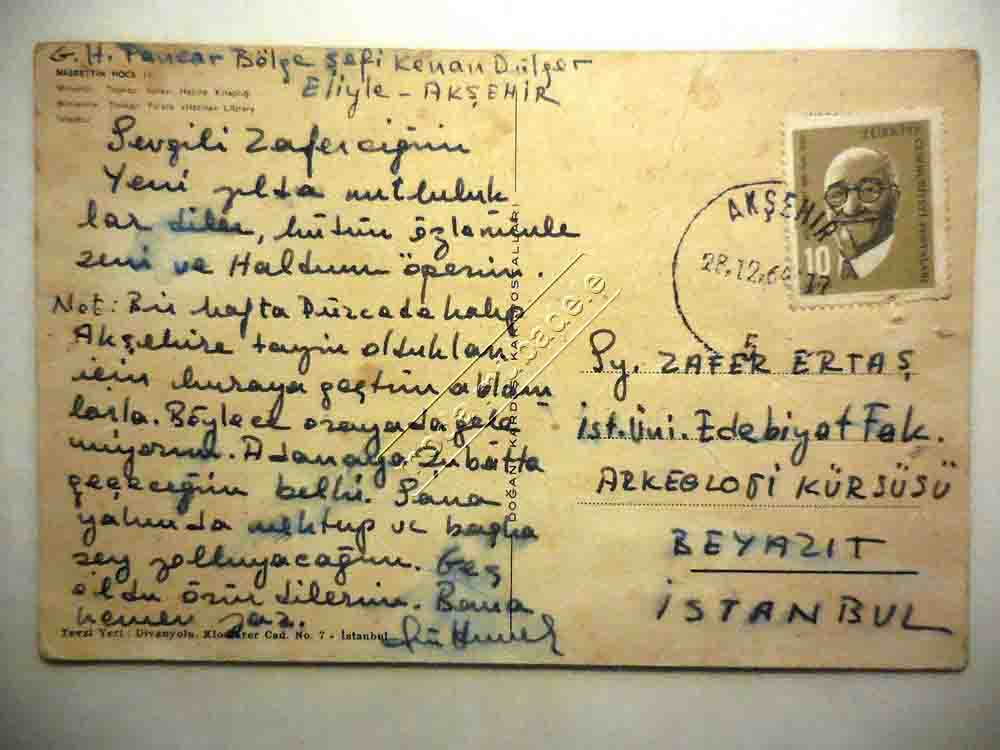 G. H. Pancar Bölge Şefi Kenan Dülger
Eliyle - AKŞEHİR
NASRETTİN HOCA
Sevgili Zaferciğim
Yeni yılda mutluluk
lar diler, bütün özlemimle
seni ve Haldunu öperim.
Not: Bir hafta Düzcede kalıp
Akşehire tayin oldukları
için buraya geçtim ablam
larla. Böylece orayada gele
miyorum. Adanaya Şubatta
geçeceğim belli. Sana
yakında mektup ve başka
şey yollıyacağım. Geç
oldu özür dilerim. Bana
hemen yaz.
Tevzi Yeri: Divanyolu, Klodfarer Cad. No. 7 - İstanbul
DOĞAN KARDEŞ KARTPOSTALLARI
TÜRKİYE CUMHURİYETİ POSTALARI
10
AKŞEHİR
28.12.64-17
Sy. ZAFER ERTAŞ
İst. Üni. Edebiyat Fak.
ARKEOLOJİ KÜRSÜSÜ
BEYAZIT
İSTANBUL